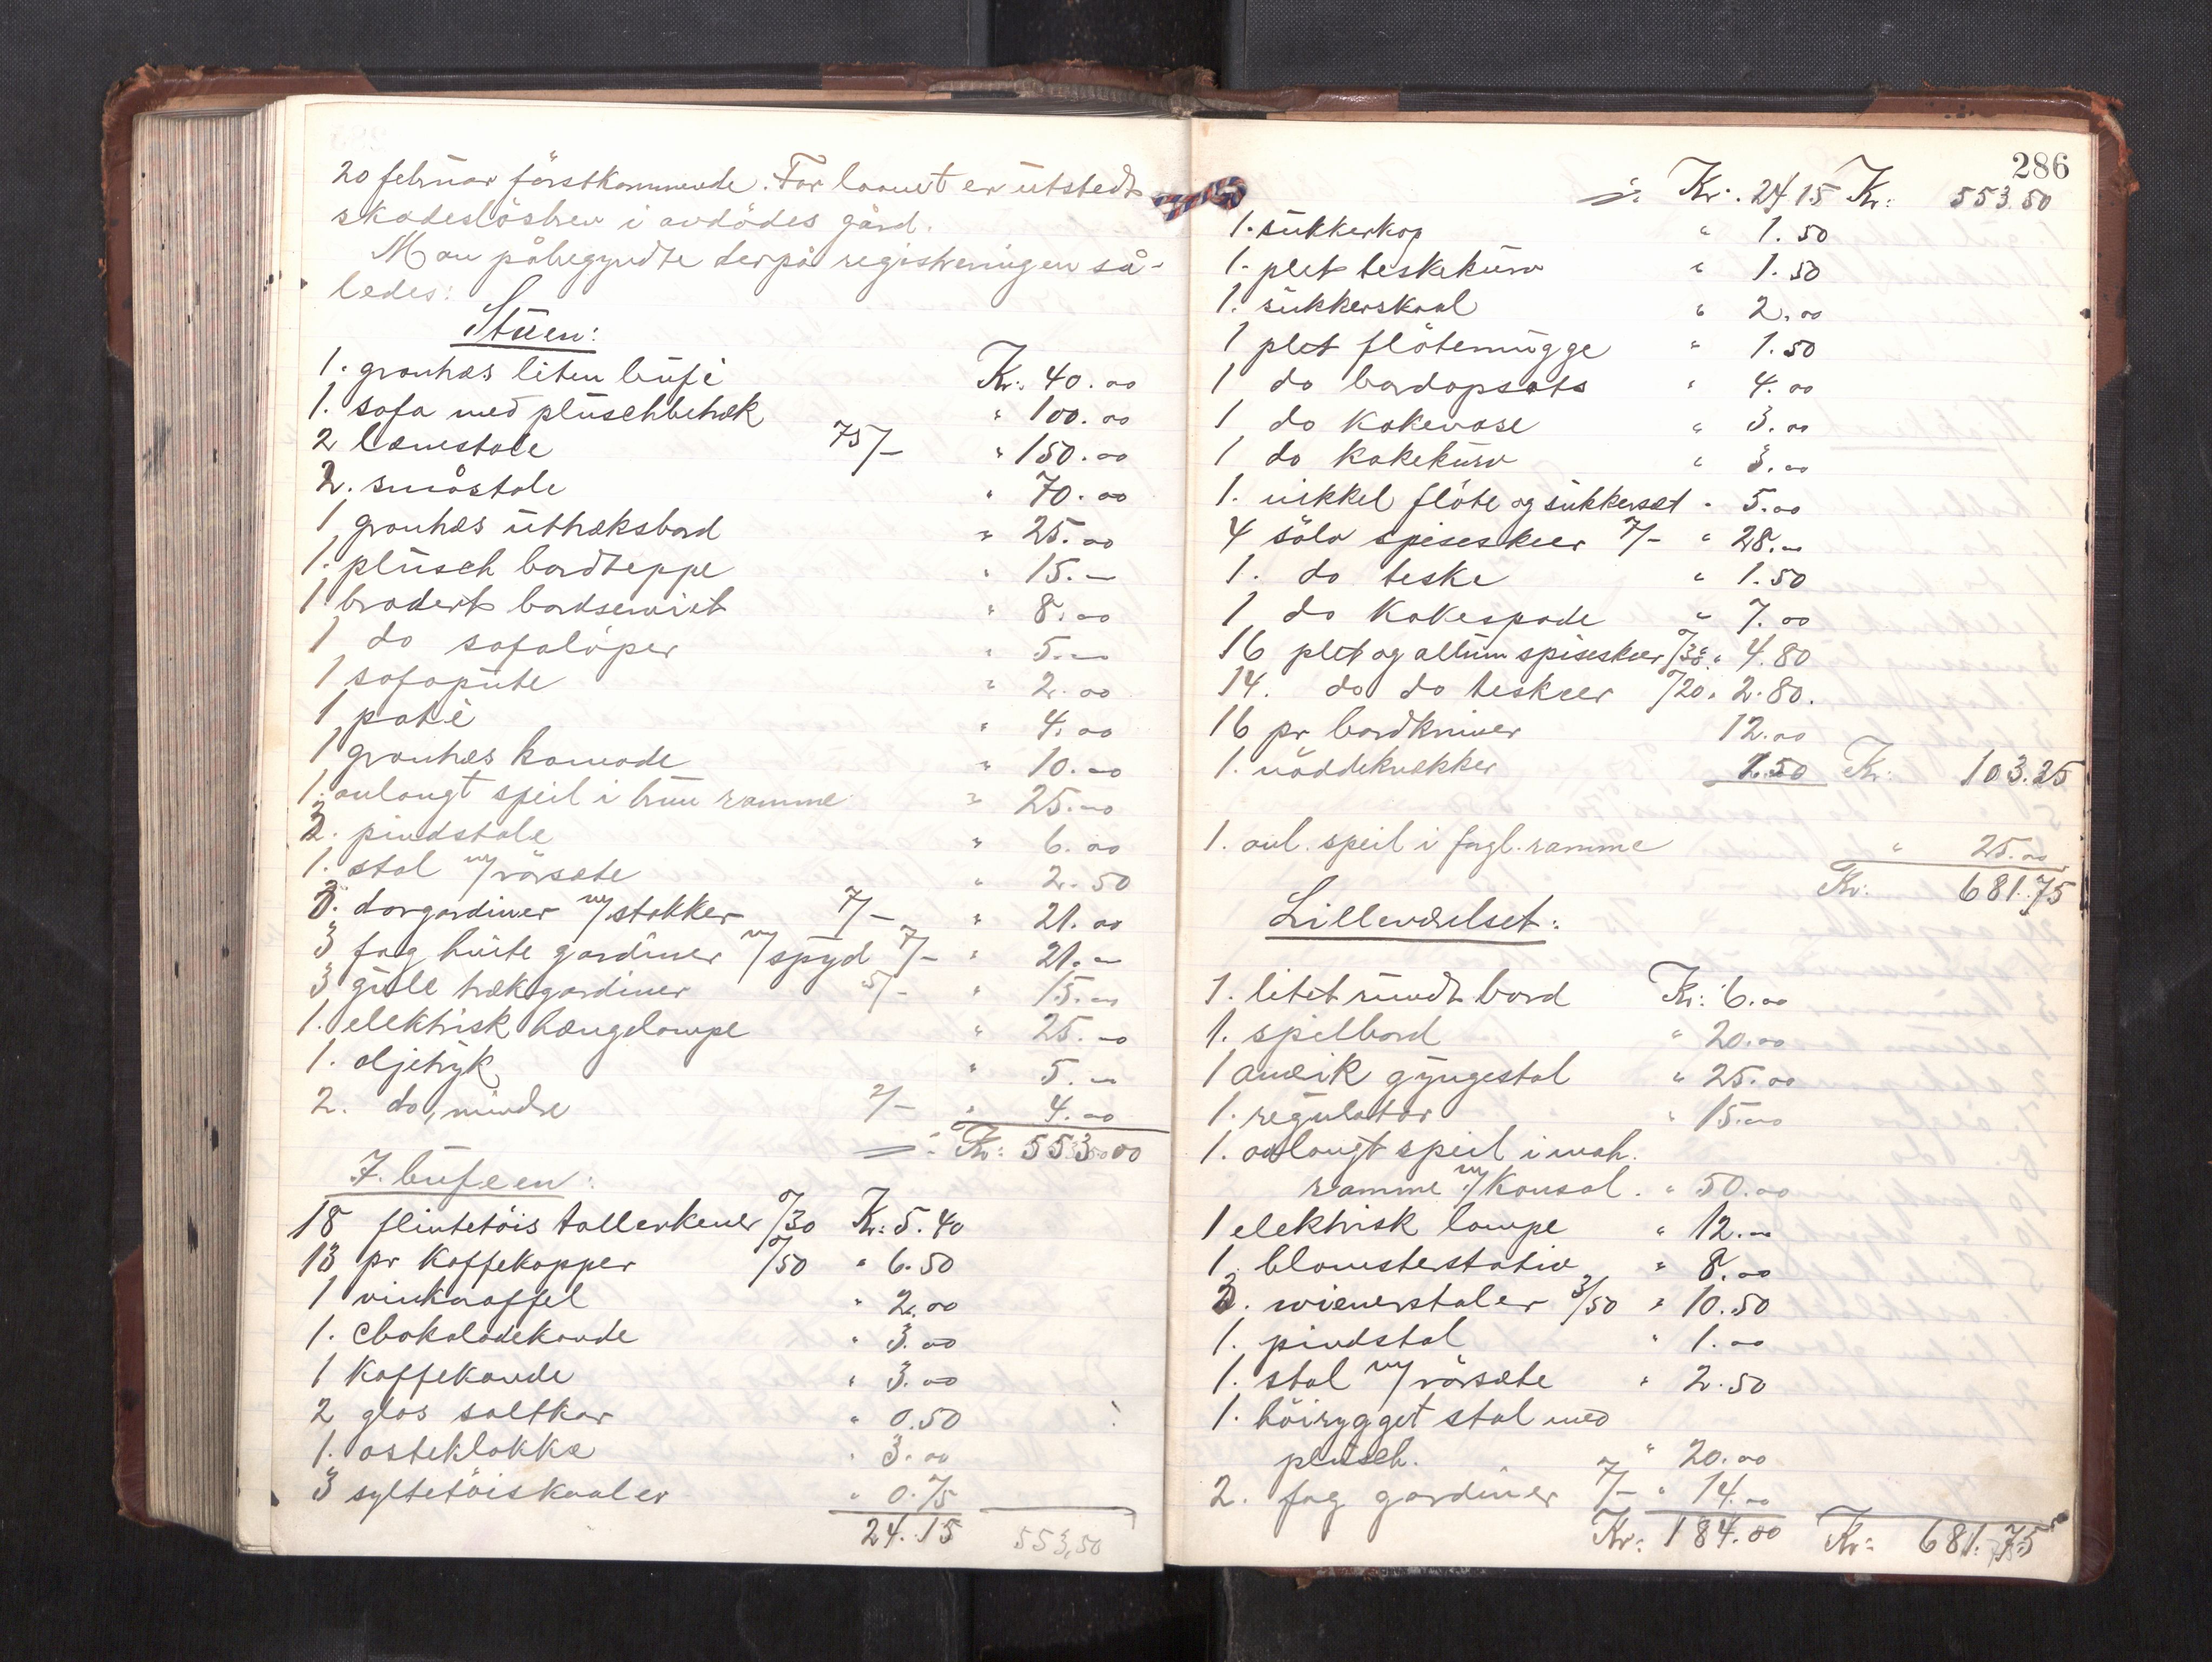 20 februar förstkommende. For laanet er utstedt
skadeslösbrev i avdödes gård.
Man påbegyndte derpå registreringen så-
ledes:
Stuen:
1. granhæs liten büfé Kr: 40.00
1. sofa med plüschbetræk " 100.00
2 lænestole 75/- " 150.00
2. småstole " 70.00
1 granhæs uttræksbord " 25.00
1. plüsch bordteppe " 15.—
1 brodert bordserviet " 8.00
1 do sofalöper " 5.—
1 sofapute " 2.00
1 " 4.00
1 granhæs komode " 10.00
1. avlangt speil i brun ramme " 25.00
2. pindstole " 6.00
1. stol m/rörsæte " 2.50
3. dörgardiner m/stokker 7/- " 21.00
3 fag hvite gardiner m/spyd 7/- " 21.—
3 gule trækgardiner 5/- " 15.—
1. elektrisk hængelampe " 25.00
1. oljetryk " 5.—
2. do, mindre 2/- " 4.00
Kr: 553.00
I büfeen:
18 flintetöis tallerkener 0/30 Kr: 5.40
13 pr kaffekopper 0/50 " 6.50
1 vinkaraffel " 2.00
1. chokoladekande " 3.00
1 kaffekande " 3.00
2 glas saltkar " 0.50
1. osteklokke " 3.00
3 syltetöiskaaler " 0.75
24.15 553,50
286
Kr: 24.15 Kr: 553.50
1. sukkerkop " 1.50
1. plet teskekurv " 1.50
1. sukkerskaal " 2.00
1 plet flötemugge " 1.50
1 do bordopsats " 4.00
1 do kakevase " 3.00
1 do kakekurv " 3.00
1. nikkel flöte og sukkersæt " 5.00
4 sölv spiseskeer 7/- " 28.—
1. do teske " 1.50
1 do kakespade " 7.00
16 plet og allüm spiseskeer 0/30 " 4.80
14. do do teskeer 0/20 " 2.80.
16 pr bordkniver 12.00
1. nöddeknækker 1.50 Kr: 103.25
1. avl. speil i forgl. ramme " 25.00
Kr: 681.75
Lilleværelset:
1. litet rundt bord Kr: 6.00
1. spilbord " 20.00
1 amrik gyngestol " 25.00
1. regulator " 15.00
1. avlangt speil i mah.
ramme m/konsol. " 50.00
1 elektrisk lampe " 12.—
1. blomsterstativ " 8.00
3. wienerstoler 3/50 " 10.50
1. pindstol " 1.00
1. stol m/rörsæte " 2.50
1. höirygget stol med
plüsch. " 20.00
2. fag gardiner 7/- " 14.00
Kr: 184.00 Kr: 681.75